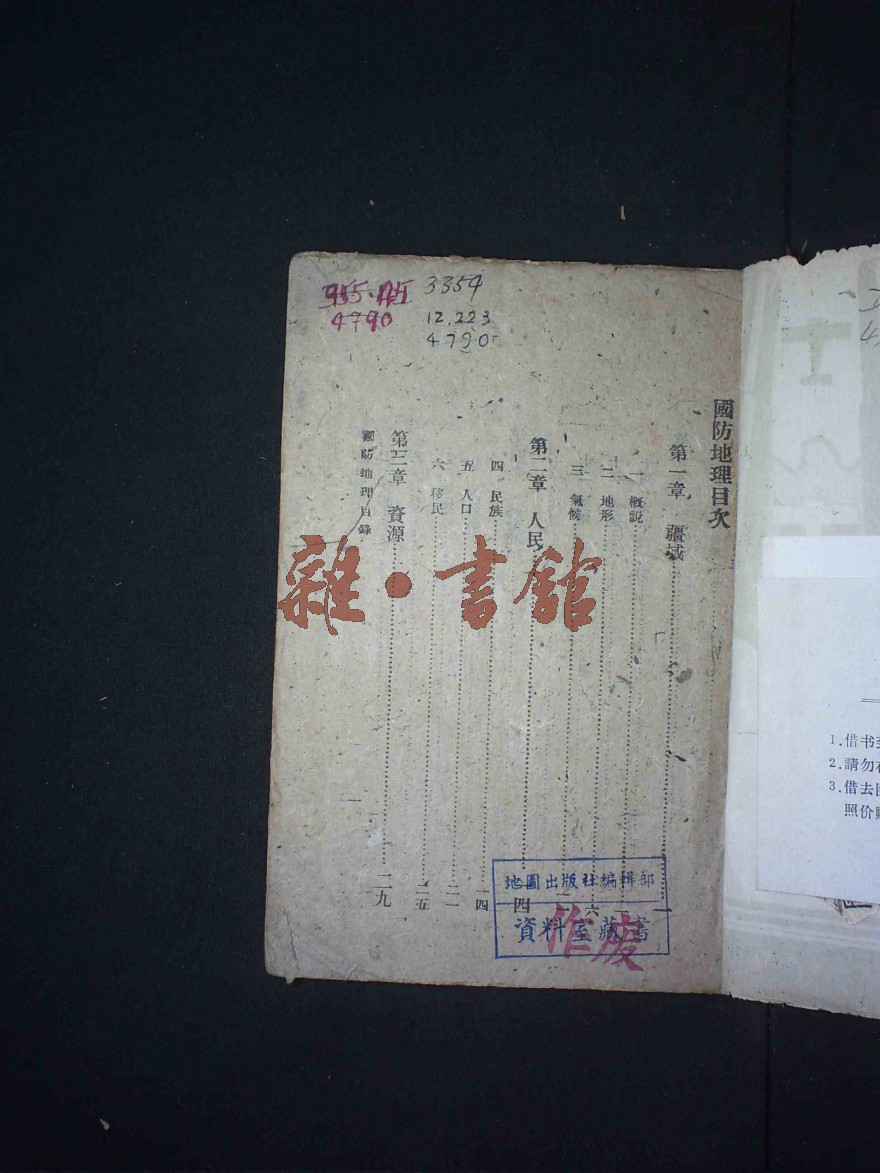 3354
4790
12.223
4790
國防地理目次
第一章 疆域 一
一 概說 一
二 地形 六
三 氣候
第二章 人民 一四
四 民族 一四
五 人口 二一
六 移民 二五
第三章 資源 二九
國防地理目錄
一
雜·書館
地圖出版社編輯部
資料室藏書
作废
1.借书
2.請勿
3.借去
照价